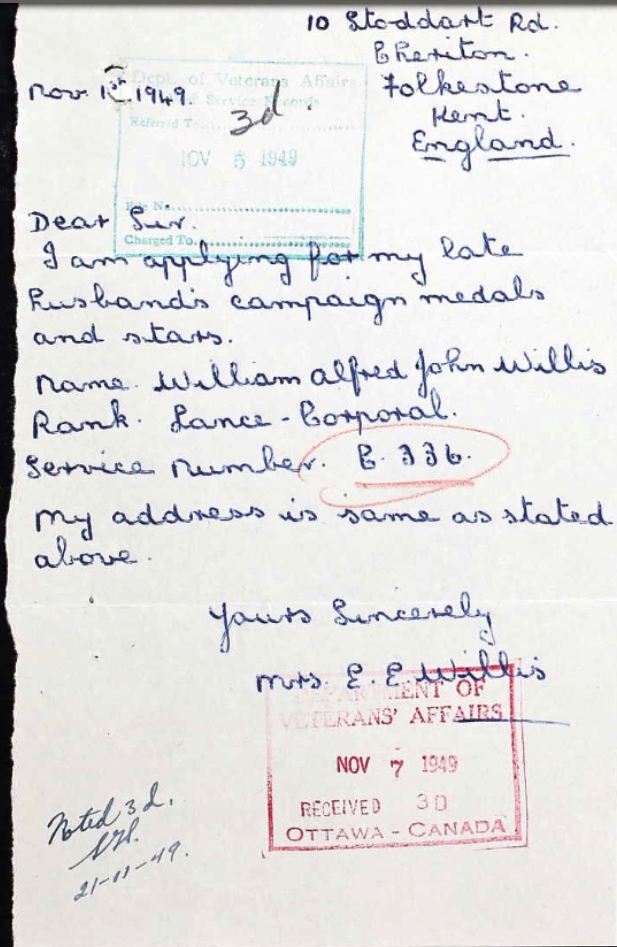 10 Stoddart Rd.
Cheriton.
Folkestone
Kent.
England.
Nov. 1st 1949.
Dept. of Veterans Affairs
Service Records
Referred To
3d.
NOV 5 1949
File No.
Charged To
Dear Sir.
I am applying for my late
husband's campaign medals
and stars.
Name. William Alfred John Willis
Rank. Lance-Corporal.
Service Number. C. 336.
My address is same as stated
above.
Yours Sincerely
Mrs. E. E. Willis
DEPARTMENT OF
VETERANS' AFFAIRS
NOV 7 1949
RECEIVED 3D
OTTAWA - CANADA
Noted 3d.
21-11-49.